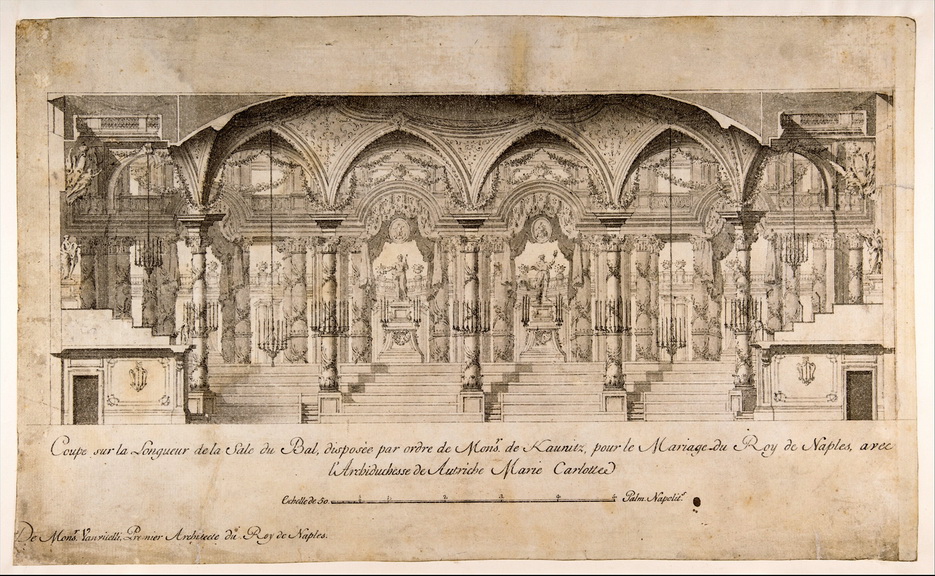 Coupe sur la Longueur de la Sale du Bal, disposée par ordre de Mons.r de Kaunitz, pour le Mariage du Roy de Naples, avec
l'Archiduchesse de Autriche Marie Carlotte
Echelle de 50. 1 2 3 4 5 Palm. Napolit.i
De Mons.r Vanvitelli, Premier Architecte du Roy de Naples.